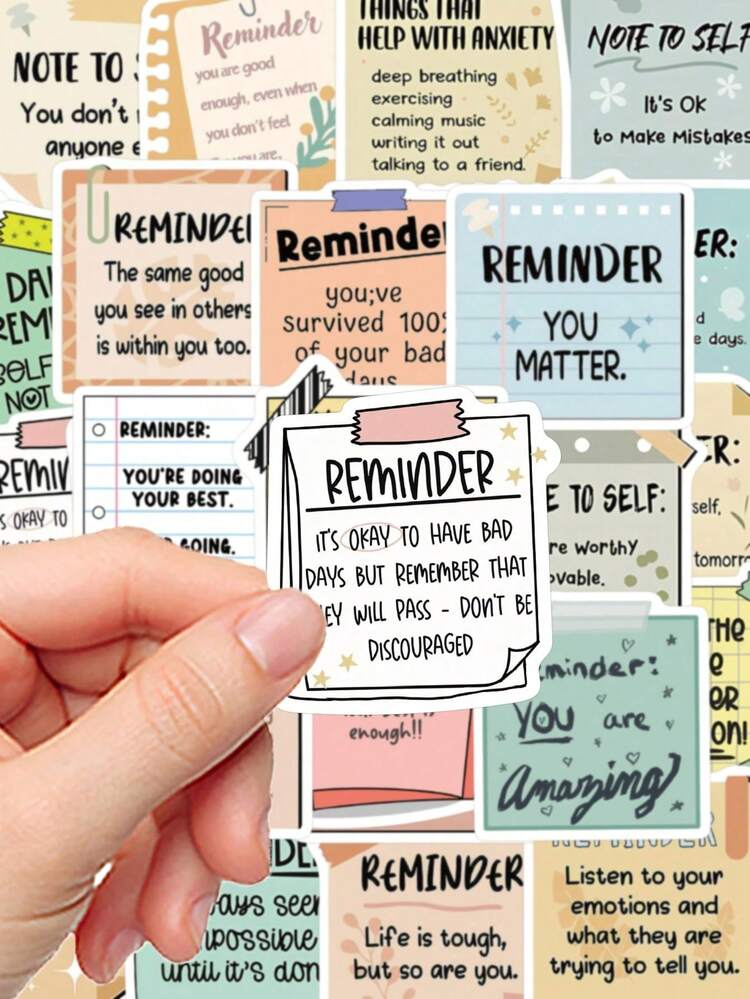 NOTE TO
You don't
anyone
Reminder
you are good
enough, even when
you don't feel
you are.
THINGS THAT
HELP WITH ANXIETY
deep breathing
exercising
calming music
writing it out
talking to a friend.
NOTE TO SELF
It's OK
to Make Mistakes
REMINDE
The same good
you see in others
is within you too.
Reminde
you;ve
survived 100%
of your bad
days
REMINDER
YOU
MATTER.
ER:
e days.
REMINDER:
YOU'RE DOING
YOUR BEST.
GOING.
REMINDER
IT'S OKAY TO HAVE BAD
DAYS BUT REMEMBER THAT
EY WILL PASS - DON'T BE
DISCOURAGED
OKAY TO
E TO SELF:
re worthy
ovable.
R:
self,
tomorr
enough!!
minder:
YOU are
Amazing
THE
ER
on!
ays seem
mpossible
until it's don
REMINDER
Life is tough,
but so are you.
REMINDER
Listen to your
emotions and
what they are
trying to tell you.